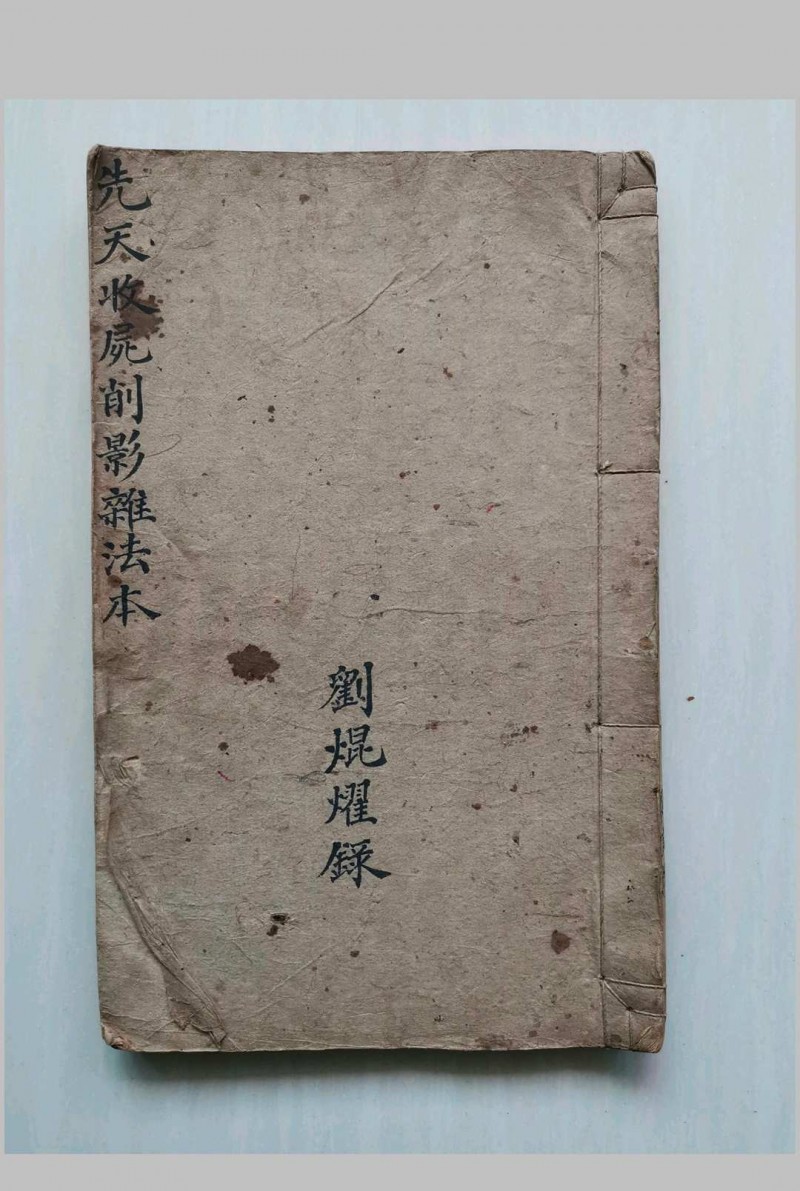 先天收屍削影雜法本
劉焜燿錄